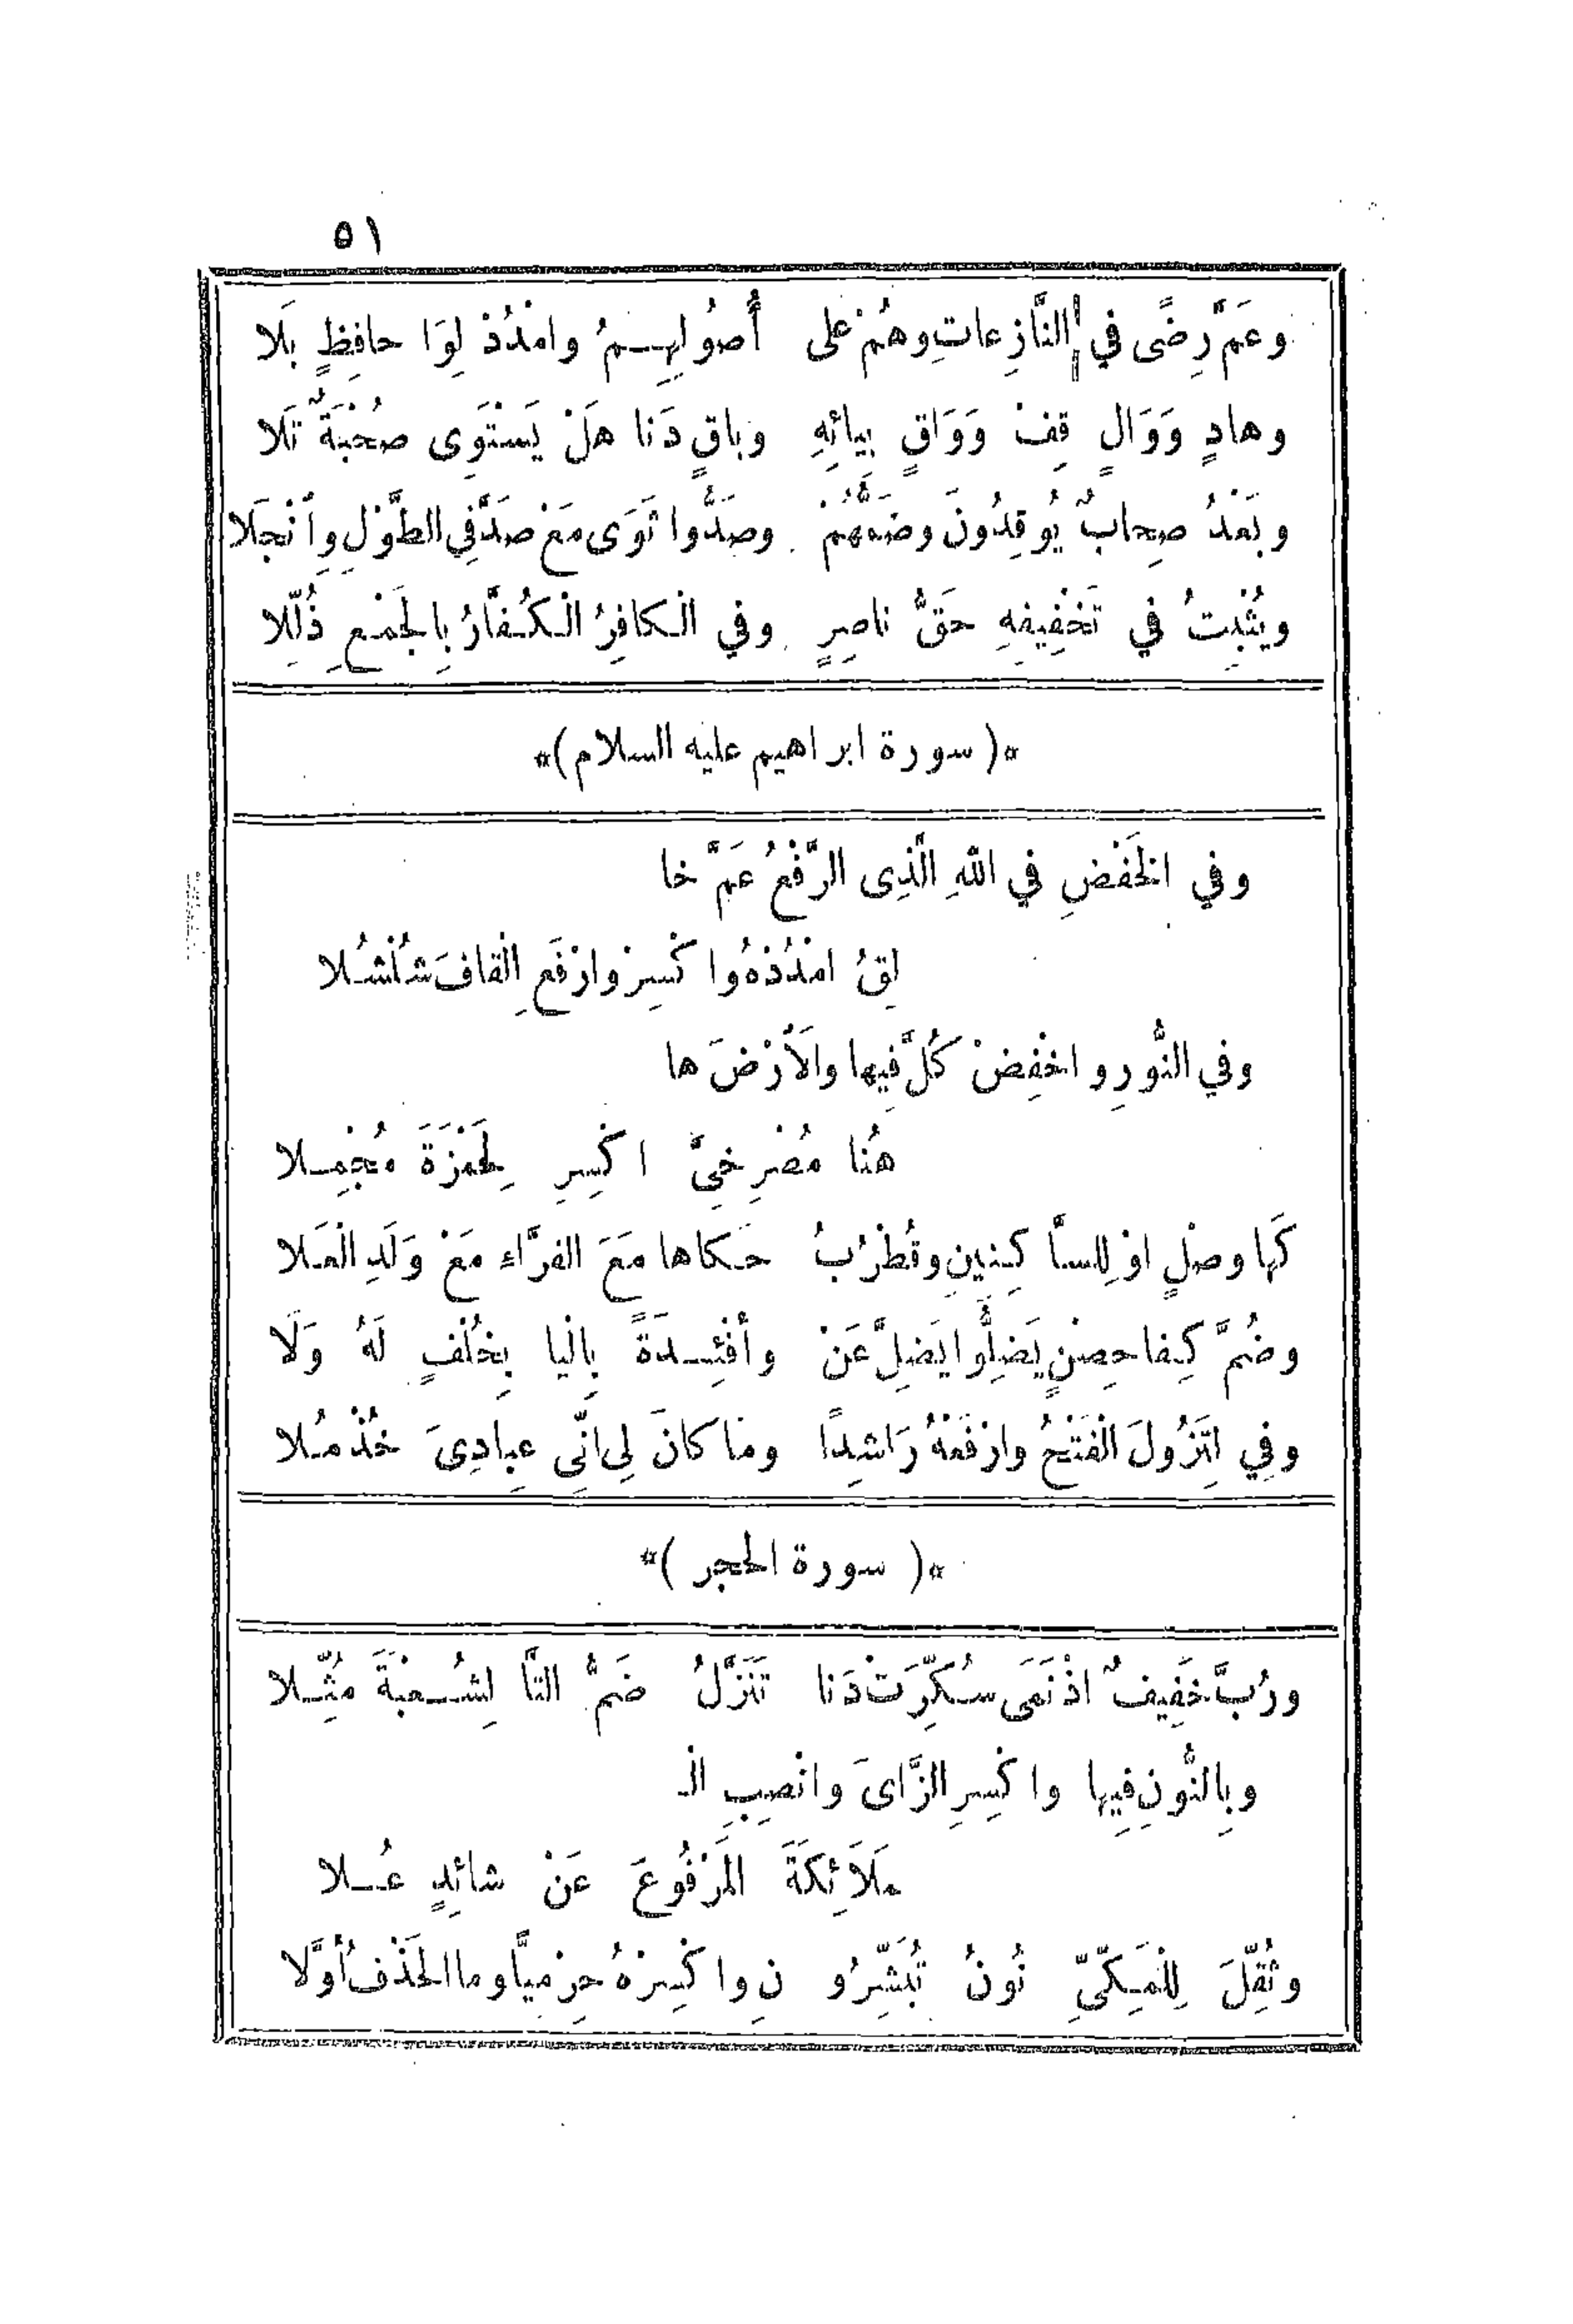 ٥١
وعَمَّ رِضًى في النَّازِعاتِ وهُمْ على أُصُولِهِمُ وامْدُدْ لِوَا حافِظٍ بَلا
وهادٍ وَوَالٍ قِفْ وَوَاقٍ بِيائِهِ وباقٍ دَنا هَلْ يَسْتَوِى صُحْبَةٌ تَلا
وبَعْدُ صِحابٌ يُوقِدُونَ وضَمُّهُمْ وصَدُّوا ثَوَى مَعْ صَدَّ فِي الطَّوْلِ وانْجَلا
ويُثْبِتُ في تَخْفِيفِهِ حَقُّ ناصِرٍ وفي الْكافِرُ الْكُفَّارُ بِالجَمْعِ ذُلِّلا
*(سورة ابراهيم عليه السلام)*
وفي الخَفْضِ في اللهِ الَّذِى الرَّفْعُ عَمَّ خا
لِقُ امْدُدْهُ واكْسِرْ وارْفَعِ الْقافَ شُلْشُلا
وفي النُّورِ واخْفِضْ كُلَّ فِيها والَأرْضَ ها
هُنا مُصْرِخِيَّ اكْسِرِ لِحَمْزَةَ مُجْمِلا
كَها وصْلٍ اوْ لِلسَّاكِنِينِ وقُطْرُبٌ حَكاها مَعَ الفَرَّاء مَعْ وَلَدِ الْعَلا
وضُمَّ كِفا حِصْنٍ يَضِلُّوا يَضِلَّ عَنْ وأفْئِدَةً بِالْيا بِخُلْفٍ لَهُ وَلَا
وفِي لِتَزُولَ الْفَتْحُ وارْفَعْهُ رَاشِدًا وما كانَ لِى انِّى عِبادِىَ خُذْ مُلا
*(سورة الحجر)*
ورُبَّ خَفِيفٌ اذْ نَمَى سُكِّرَتْ دَنا تَنَزَّلُ ضَمُّ التَّا لِشُعْبَةَ مُثِّلا
وبِالنُّونِ فِيها واكْسِرِ الزَّاىَ وانْصِبِ الْـ
مَلَائِكَةَ المَرْفُوعَ عَنْ شائِدٍ عُلا
وثُقِّلَ لِلْمَكِّىِّ نُونُ تُبَشِّرُو نِ واكْسِرْهُ حِرْمِيًّا وما الحَذْفُ أوَّلا